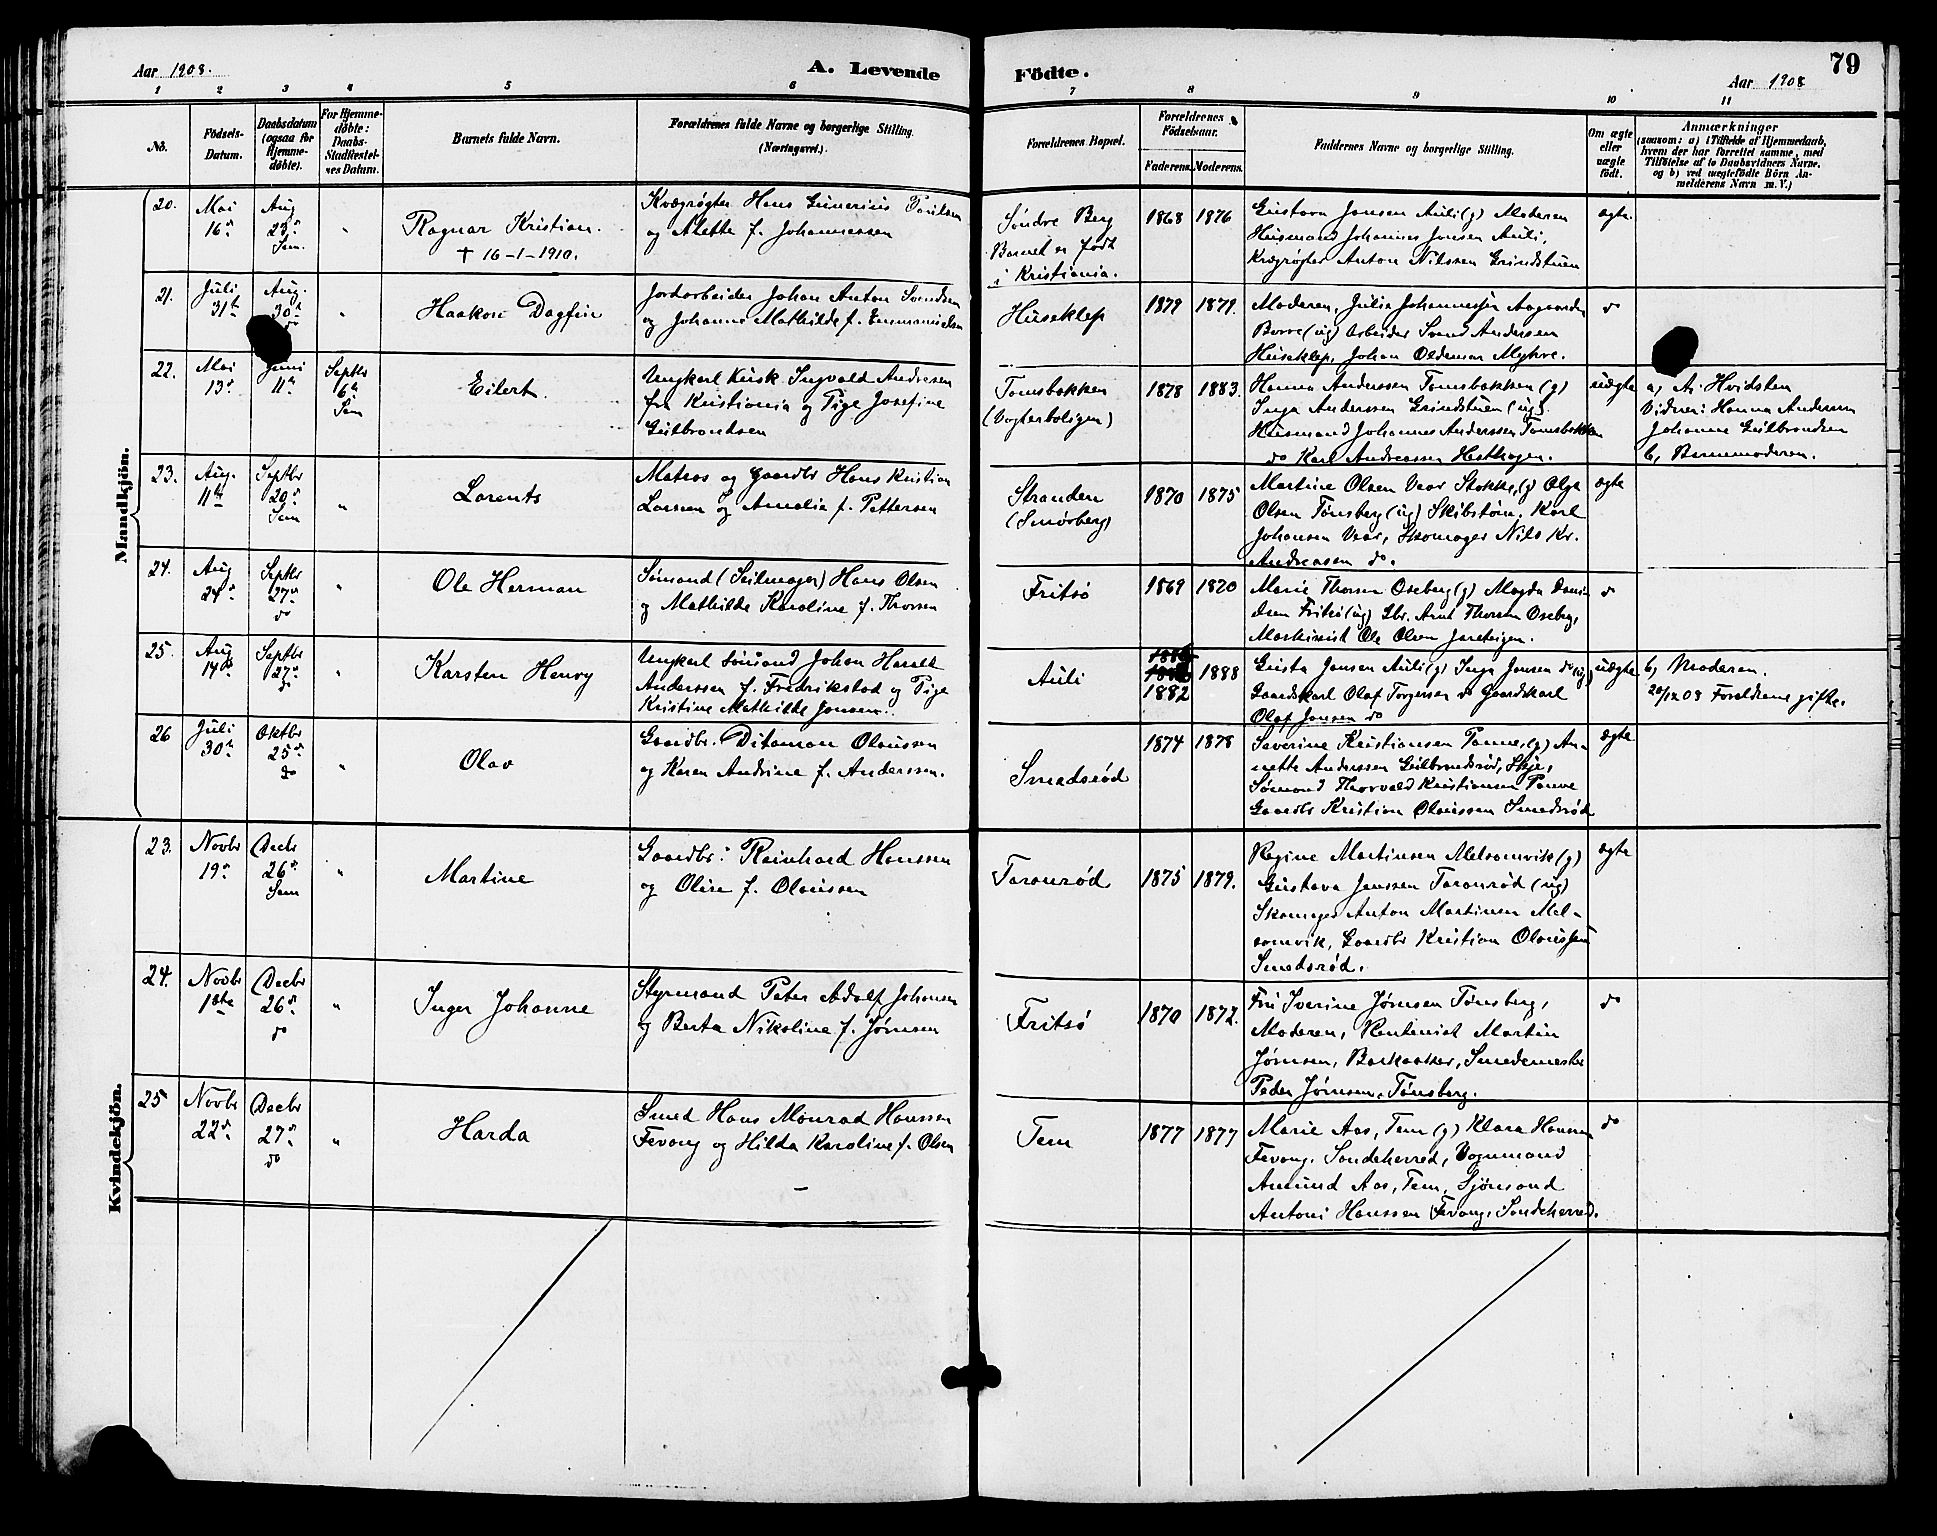 Aar 1908.
A. Levende
Födte.
79
Aar 1908
1 2 3 4 5 6 7 8 9 10 11
No.
Födsels-
Datum.
Daabsdatum
(ogsaa for
Hjemme-
döbte).
For Hjemme-
döbte:
Daabs-
Stadfæstel-
ses Datum.
Barnets fulde Navn.
Forældrenes fulde Navne og borgerlige Stilling.
(Næringsvei.)
Forældrenes Bopæl.
Forældrenes
Födselsaar.
Faderens. Moderens.
Faddernes Navne og borgerlige Stilling.
Om ægte
eller
uægte
födt.
Anmærkninger
(saasom: a) i Tilfælde af Hjemmedaab,
hvem der har forrettet samme, med
Tilföielse af to Daabsvidners Navne,
og b) ved uægtefödte Börn An-
melderens Navn m. V.)
Mandkjön.
20.
Mai
16de
Aug
23de
Sem.
"
Ragnar Kristian.
† 16-1-1910.
Kvægrøgter Hans Gunerius Paulsen
og Mette f. Johannessen
Søndre Berg
Barnet er født
i Kristiania.
1868 1876
Gustava Jensen Auli (g) Moderen
Husmand Johannes Jensen Auli,
Kvægrøgter Anton Nilssen Grindstuen
ægte
21.
Juli
31te
Aug.
30te
do
"
Haakon Dagfin
Jordarbeider Johan Anton Svendsen
og Johanne Mathilde f. Emmanuelsen
Huseklep
1879 1879.
Moderen, Julie Johannessen Aagaarden
Borre (ug) Arbeider Svend Andersen
Huseklep, Johan Oldeman Myhre.
do
22.
Mai
13de
Juni
11te
Septbr
6te
Sem
Eilert.
Ungkarl Kusk Ingvald Andresen
fra Kristiania og Pige Josefine
Gulbrandsen
Tomsbakken
(Vogterboligen)
1878 1883.
Hanna Anderssen Tomsbakken (g)
Inga Anderssen Grindstuen (ug).
Husmand Johannes Anderssen Tomsbakken
do Karl Andreassen Hesthagen.
uægte
a, A. Hvidsten
Vidner: Hanna Andersen
Johanne Gulbrandsen
b, Barnemoderen.
23.
Aug.
11te
Septbr
20de
Sem
"
Lorents
Matros og Gaardbr Hans Kristian
Larsen og Amalia f. Pettersen
Stranden
(Smørberg)
1870 1875
Martine Olsen Vear Stokke, (g) Olga
Olsen Tønsberg (ug) Skibstøm. Karl
Johansen Vear, Skomager Nils Kr.
Andreasen do.
ægte
24.
Aug
24de
Septbr
27de
do
"
Ole Herman
Sømand (Seilmager) Hans Olsen
og Mathilde Karoline f. Thorsen
Fritsø
1869 1870
Marie Thorsen Oseberg (g) Magda Davi-
dsen Fritsø (ug) Gbr. Arnt Thorsen Oseberg,
Maskinist Ole Olsen Jareteigen.
do
25.
Aug
14de
Septbr
27de
do
"
Karsten Henry
Ungkarl Sømand Johan Harald
Anderssen f. Fredrikstad og Pige
Kristine Mathilde Jensen.
Auli
1882
1888
Gusta Jensen Auli (g) Inga Jensen do (ug)
Gaardskarl Olaf Torgersen do Gaardkarl
Olaf Jensen do
uægte
b, Moderen.
20/12 08 Forældrene gifte.
26
Juli
30te
Oktbr
25de
do
"
Olav
Gaardbr. Ditaman Olaussen
og Karen Andrine f. Anderssen.
Smedsrød
1874 1878
Severine Kristiansen Tanne, (g) An-
nette Anderssen Gulbrandsrød, Skje,
Sømand Thorvald Kristiansen Tanne
Gaardbr Kristian Olaussen Smedsrød
ægte
Kvindekjön.
23.
Novbr
19de
Decbr
26de
Sem
"
Martine
Gaardbr. Reinhard Hanssen
og Oline f. Olaussen
Taranrød
1875 1879.
Regine Martinsen Melsomvik (g)
Gustava Janssen Taranrød (ug)
Skomager Anton Martinsen Mel-
somvik, Gaardbr Kristian Olaussen
Smedsrød.
ægte
24.
Novbr
1ste
Decbr
26de
do
"
Inger Johanne
Styrmand Peter Adolf Johansen
og Berta Nikoline f. Jørnsen
Fritsø
1870 1872.
Fru Iverine Jørnsen Tønsberg,
Moderen, Rentenist Martin
Jørnsen, Barkaaker, Smedemester
Peder Jørnsen, Tønsberg.
do
25
Novbr
22de
Decbr
27de
do
"
Harda
Smed Hans Monrad Hanssen
Fevang og Hilda Karoline f. Olsen
Tem
1877 1877
Marie Aas, Tem (g) Klara Hansen
Fevang, Sandeherred, Vognmand
Amund Aas, Tem, Sjømand
Antoni Hanssen Fevang, Sandeherred.
do